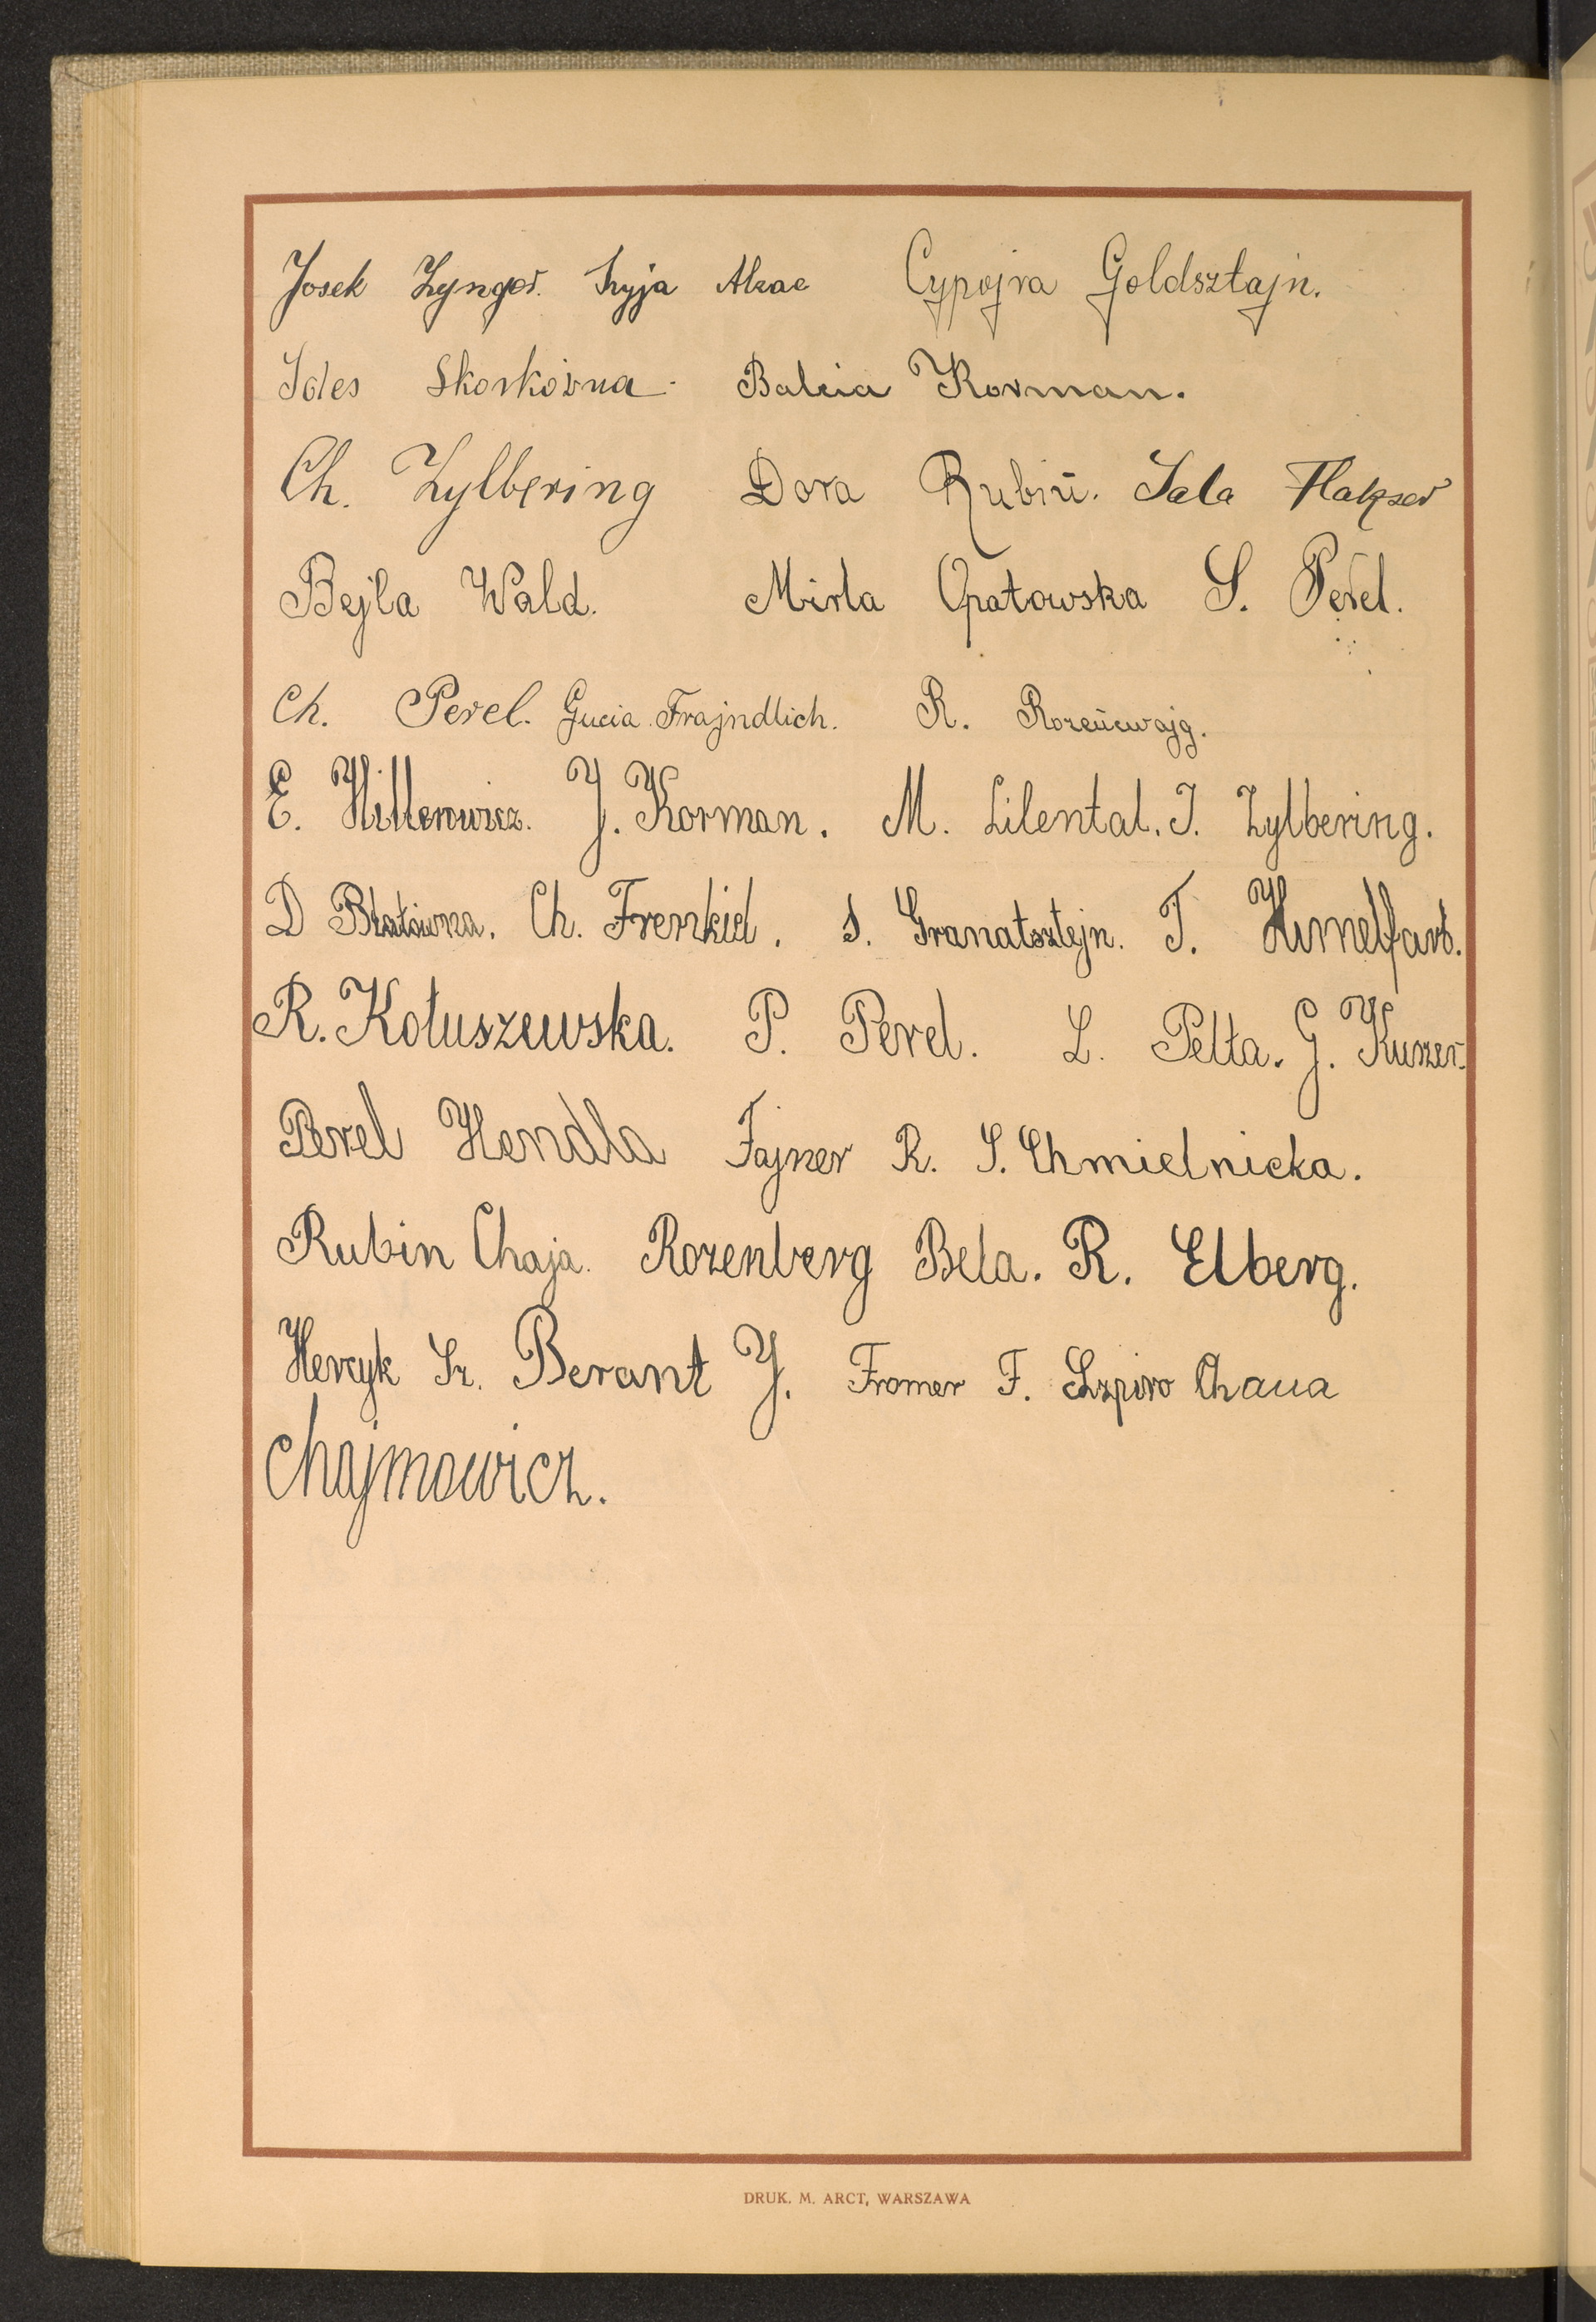 Josek Zynger. Szyja Alzac Cypojra Goldsztajn.
Ides Skorkówna. Balcia Korman.
Ch. Zylbering Dora Rubin. Sala Flakser
Bejla Wald. Mirla Opatowska S. Perel.
Ch. Perel. Gucia Frajndlich. R. Rozencwajg.
E. Hillerowicz. J. Korman. M. Lilental. I. Zylbering.
D Blatówna. Ch. Frenkiel. S. Granatsztejn. T. Himelfarb.
R. Kołuszewska. P. Perel. L. Pelta. G. Kuszer.
Perel Hendla Fajner R. S. Chmielnicka.
Rubin Chaja. Rozenberg Bela. R. Elberg.
Hercyk Sz. Berant J. Fromer F. Szpiro Chaua
Chajmowicz.
DRUK. M. ARCT, WARSZAWA